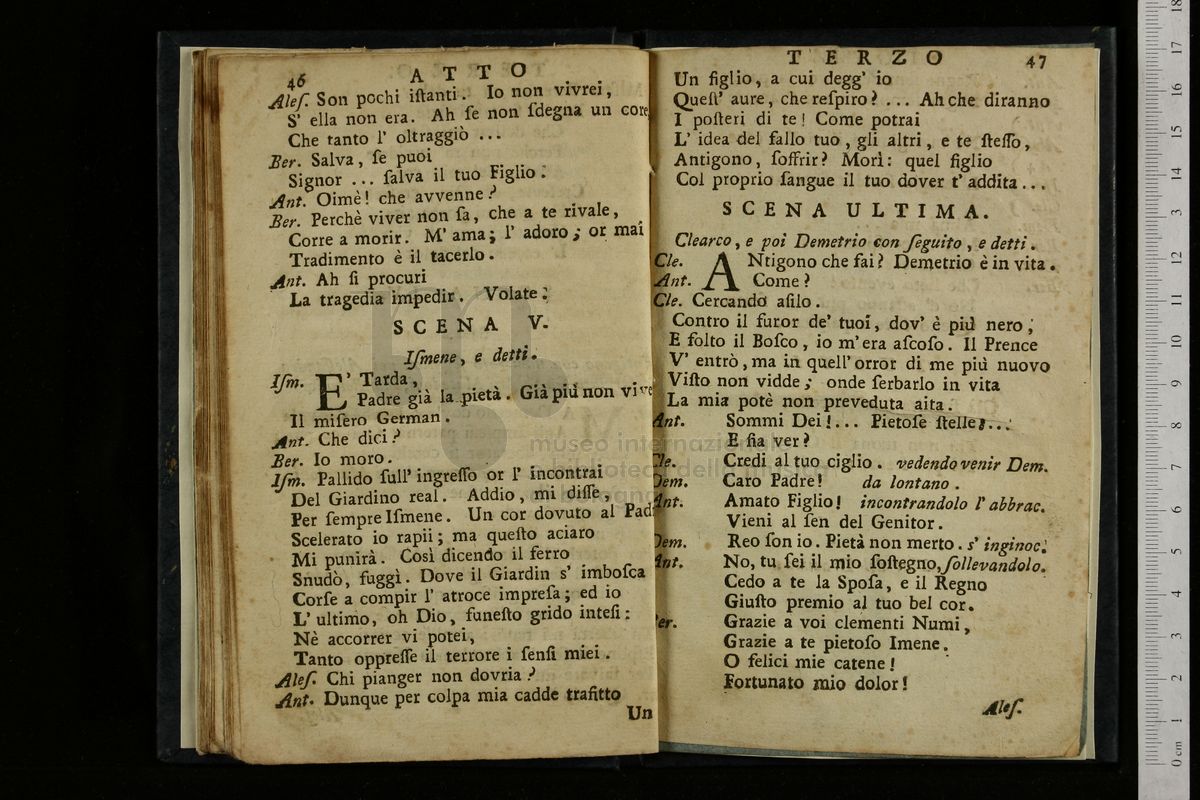 46
ATTO
Aleſ. Son pochi iſtanti. Io non vivrei,
S' ella non era. Ah ſe non ſdegna un core
Che tanto l' oltraggiò ...
Ber. Salva, ſe puoi
Signor ... ſalva il tuo Figlio.
Ant. Oimè! che avvenne?
Ber. Perchè viver non ſa, che a te rivale,
Corre a morir. M' ama; l' adoro; or mai
Tradimento è il tacerlo.
Ant. Ah ſi procuri
La tragedia impedir. Volate.
SCENA V.
Iſmene, e detti.
Iſm. E' Tarda,
Padre già la pietà. Già più non vive
Il miſero German.
Ant. Che dici?
Ber. Io moro.
Iſm. Pallido ſull' ingreſſo or l' incontrai
Del Giardino real. Addio, mi diſſe,
Per ſempre Iſmene. Un cor dovuto al Pad
Scelerato io rapii; ma queſto aciaro
Mi punirà. Così dicendo il ferro
Snudò, fuggì. Dove il Giardin s' imboſca
Corſe a compir l' atroce impreſa; ed io
L' ultimo, oh Dio, funeſto grido inteſi:
Nè accorrer vi potei,
Tanto oppreſſe il terrore i ſenſi miei.
Aleſ. Chi pianger non dovria?
Ant. Dunque per colpa mia cadde trafitto
Un
TERZO
47
Un figlio, a cui degg' io
Queſt' aure, che reſpiro? ... Ah che diranno
I poſteri di te! Come potrai
L' idea del fallo tuo, gli altri, e te ſteſſo,
Antigono, ſoffrir? Morì: quel figlio
Col proprio ſangue il tuo dover t' addita...
SCENA ULTIMA.
Clearco, e poi Demetrio con ſeguito, e detti.
Cle. ANtigono che fai? Demetrio è in vita.
Ant. Come?
Cle. Cercando aſilo.
Contro il furor de' tuoi, dov' è più nero,
E folto il Boſco, io m' era aſcoſo. Il Prence
V' entrò, ma in quell' orror di me più nuovo
Viſto non vidde; onde ſerbarlo in vita
La mia potè non preveduta aita.
Ant. Sommi Dei!... Pietoſe ſtelle!...
E ſia ver?
Cle. Credi al tuo ciglio. vedendo venir Dem.
Dem. Caro Padre! da lontano.
Ant. Amato Figlio! incontrandolo l' abbrac.
Vieni al ſen del Genitor.
Dem. Reo ſon io. Pietà non merto. s' inginoc.
Ant. No, tu ſei il mio ſoſtegno, ſollevandolo.
Cedo a te la Spoſa, e il Regno
Giuſto premio al tuo bel cor.
Ber. Grazie a voi clementi Numi,
Grazie a te pietoſo Imene.
O felici mie catene!
Fortunato mio dolor!
Aleſ.